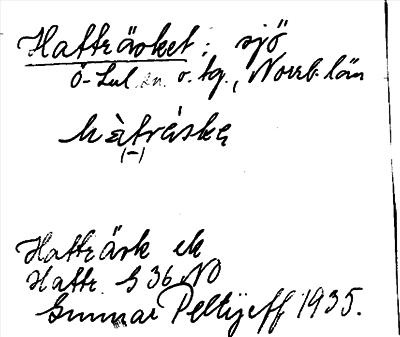 Hatträsket; sjö
Ö-Lul sn. o. tg., Norrb. län
hàtráska
(-)
Hatträsk ek
Hattr. G 36 NO
Gunnar Peltijeff 1935.